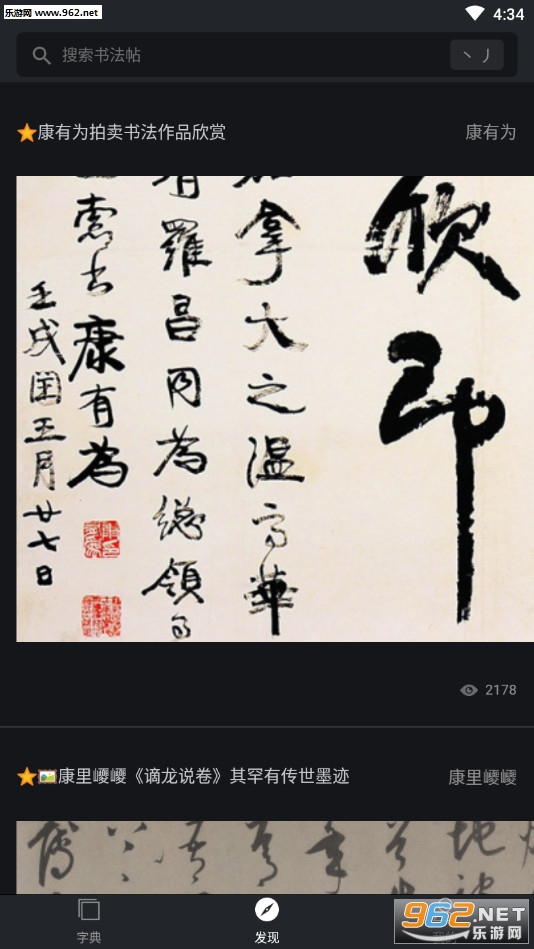 乐游网 www.962.net
4:34
搜索书法帖
丶 丿
康有为拍卖书法作品欣赏
康有为
欣
印
拿大之温高華
有羅昌同為總領
憲书康有為
壬戌閏五月廿七日
2178
康里巎巎《谪龙说卷》其罕有传世墨迹
康里巎巎
字典
发现
962.NET
乐游网